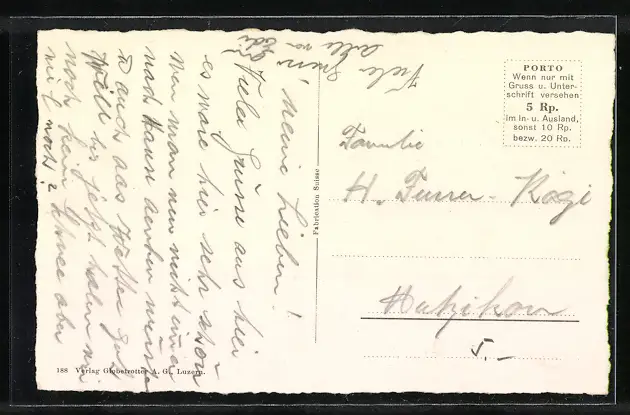 Meine Lieben!
Viele Grüsse aus hier
es wäre hier sehr schön
wen man nur nicht immer
nach Hause denken müsste
auch das Wetter
bis jetzt haben wir
noch kein Schnee aber
noch?
Viele
alle
PORTO
Wenn nur mit
Gruss u. Unter-
schrift versehen
5 Rp.
im In- u. Ausland,
sonst 10 Rp.
bezw. 20 Rp.
Familie
H. Furrer-Kägi
Hutzikon
5.–
Fabrication Suisse
188 Verlag Globetrotter A. G., Luzern.